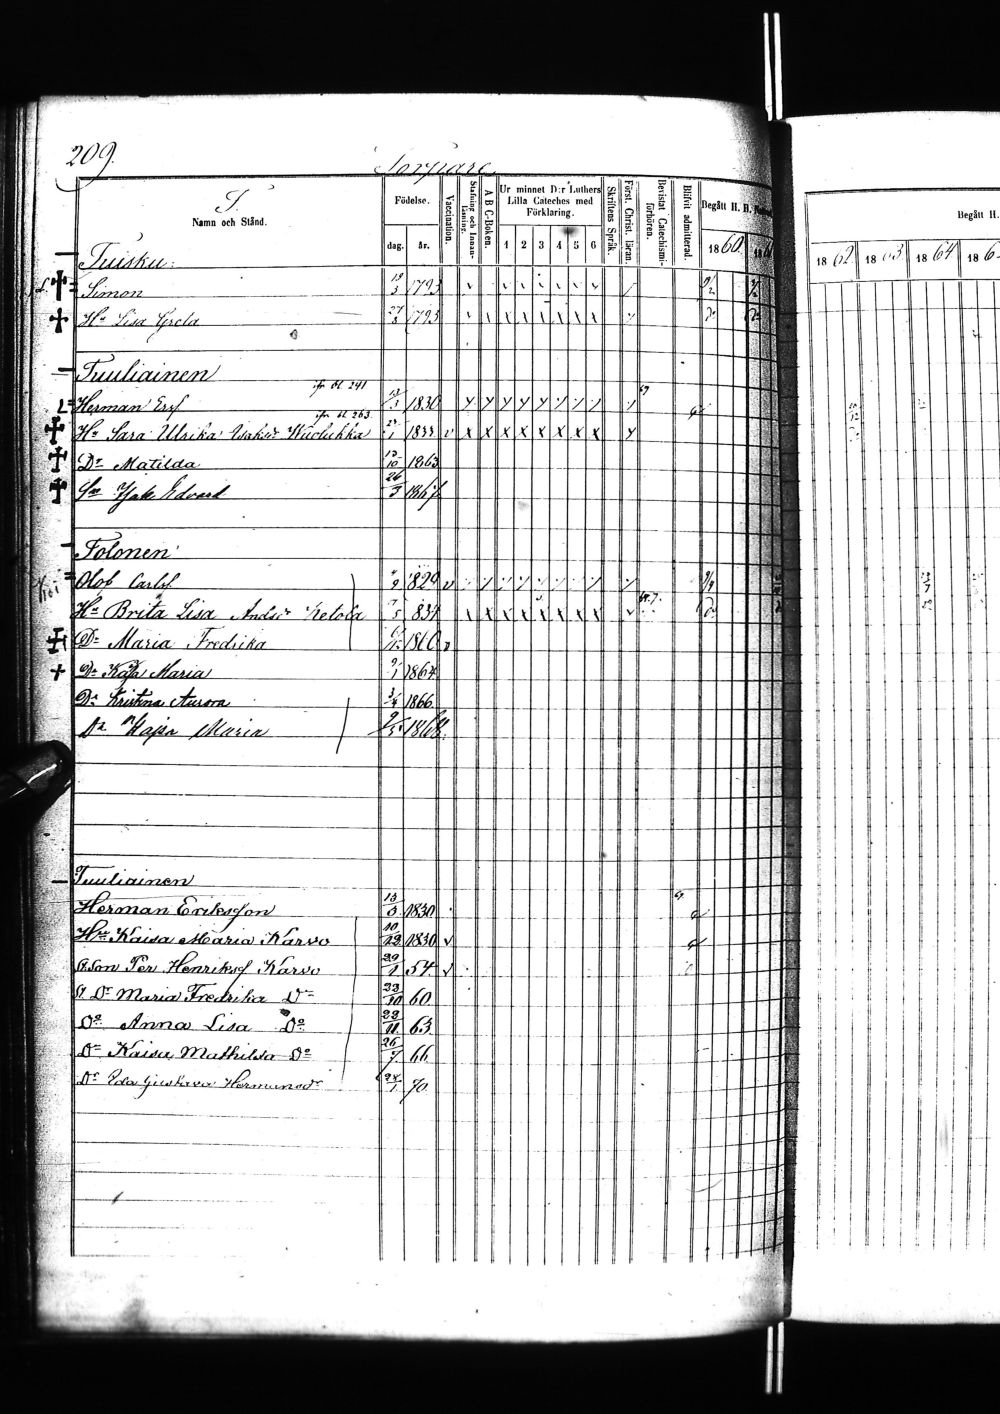 209.
Torpare
T.
Namn och Stånd.
Födelse.
dag. år.
Vaccination.
Stafning och Innanläsning.
A B C-Boken.
Ur minnet D:r Luthers Lilla Cateches med Förklaring.
1 2 3 4 5 6
Skriftens Språk.
Först. Christ. läran
Bevistat Catechismiförhören.
Blifvit admitterad.
Begått H. H.
1860
Begått H.
1862 1863 1864 186
Tuisku.
Simon 1793
Hu Lisa Greta 27/3 1793
Tuuliainen
ifr bl. 241
Herman Ersf. 13/3 1830
ifr bl. 263.
Hu Sara Ulrika Isaksdr Kuolukka 1833
Dr Matilda 13/10 1863
Sn Isak Edvard 26/3 1867
Tolonen
Olof Carlsf. 1829
Hu Brita Lisa Andsdr Ketola 1834
Dr Maria Fredrika 1860
Dr Kajsa Maria 9/1 1864
Dr Kristina Aurora 3/4 1866
Dr Kajsa Maria 1868.
Tuuliainen
Herman Eriksson 13/3 1830
Hu Kaisa Maria Karvo 10/12 1830
St.Son Per Henriksf Karvo 29/1 54
St. Dr Maria Fredrika Do 23/10 60
Do Anna Lisa Do 23/11 63
Dr Kaisa Mathilda Do 26/7 66
Dr Eda Gustava Hermansdr 24/1 70